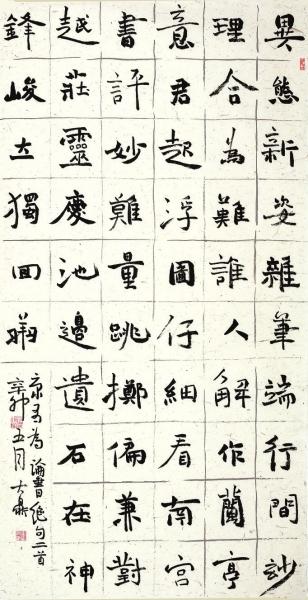 異態新姿雜筆端行間妙
理合為難誰人解作蘭亭
意君起浮圖仔細看南宮
書評妙難量跳擲偏兼對
越莊靈慶池邊遺石在神
鋒峻立獨回翔
康有為論書絕句二首
辛卯五月